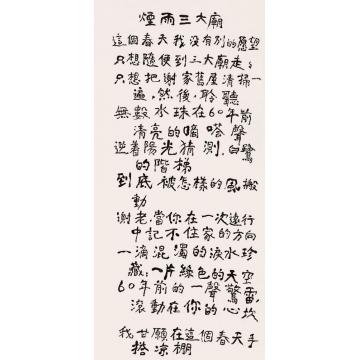 煙雨三大廟
這個春天我没有别的愿望
只想随便到三大廟走走
只想把谢家舊屋清掃一
遍,然後,聆聽
無數水珠在60年前
清亮的嘀嗒聲
逆着陽光猜測,白鷺
的階梯
到底被怎樣的風搬
動
谢老,當你在一次遠行
中記不住家的方向
一滴混濁的淚水珍
藏:一片綠色的天空
60年前的一聲驚雷
滚動在你的心坎
我甘願在這個春天手
搭凉棚